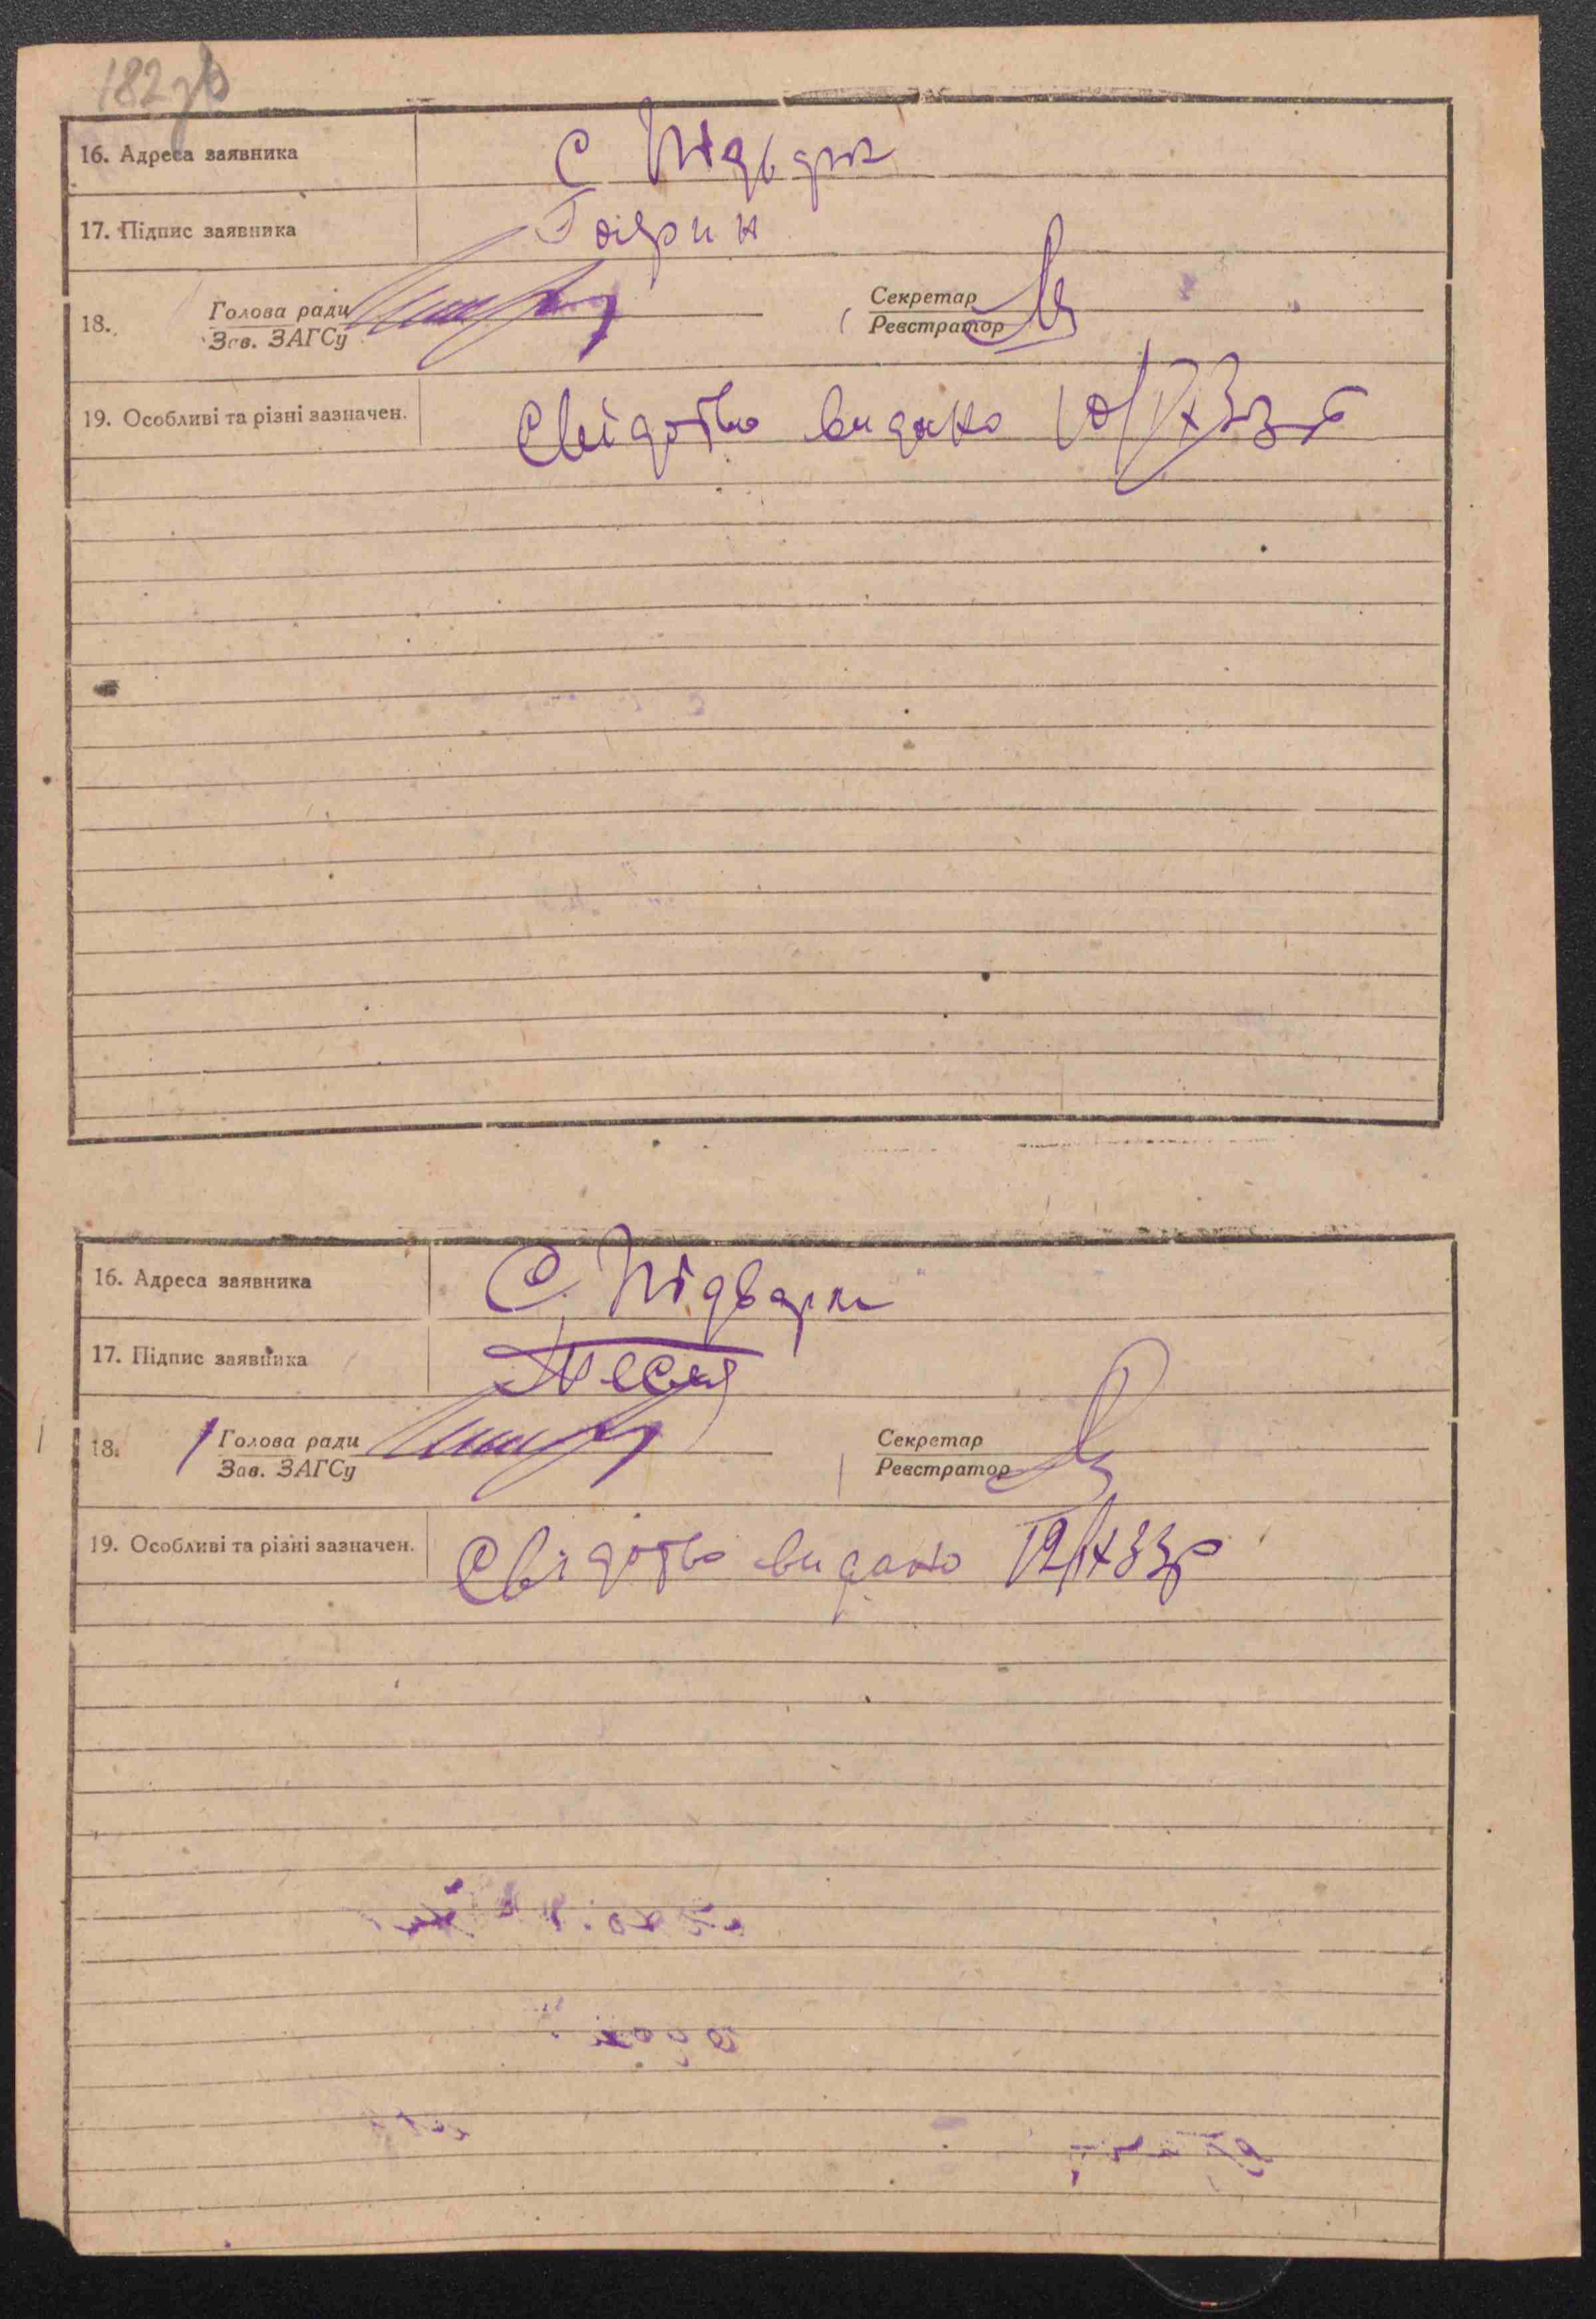 182зв
16. Адреса заявника С Підварк
17. Підпис заявника Гаврин
18. Голова ради Секретар
Зав. ЗАГСу Реєстратор
19. Особливі та різні зазначен. Свідотво видано 10/IX 33 р
16. Адреса заявника С. Підварки
17. Підпис заявника
18. Голова ради Секретар
Зав. ЗАГСу Реєстратор
19. Особливі та різні зазначен. Свідотво видано 12/IX 33р